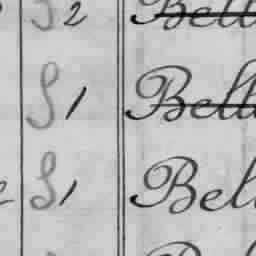 S 2 Bell
S 1 Bell
S 1 Bel